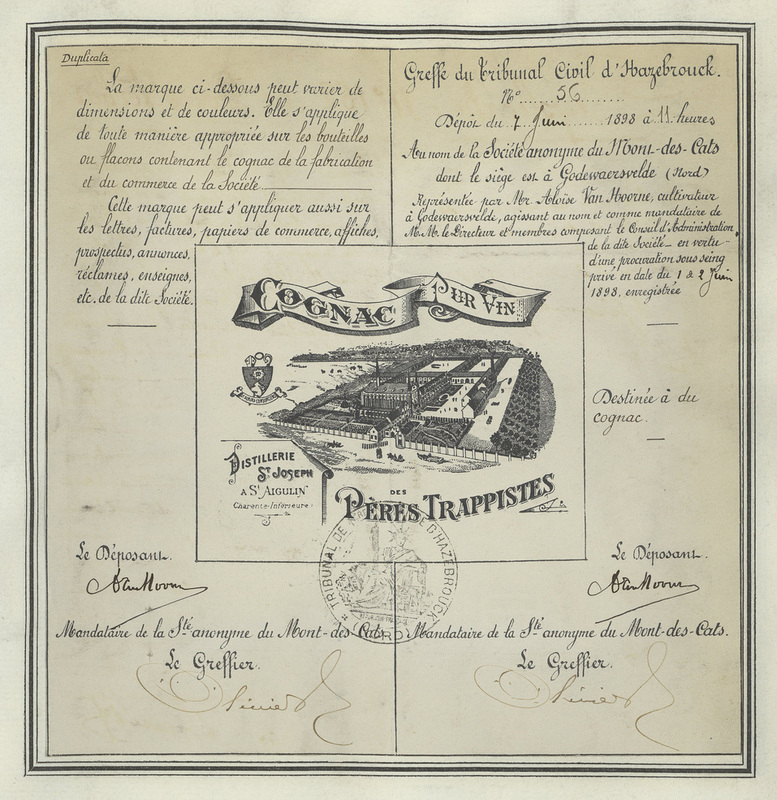 Duplicata
La marque ci-dessous peut varier de
dimensions et de couleurs. Elle s'applique
de toute manière appropriée sur les bouteilles
ou flacons contenant le cognac de la fabrication
et du commerce de la Société
Cette marque peut s'appliquer aussi sur
les lettres, factures, papiers de commerce, affiches,
prospectus, annonces,
réclames, enseignes,
etc. de la dite Société.
Greffe du Tribunal Civil d'Hazebrouck.
N° 56
Dépôt du 7 Juin 1898 à 11 heures
Au nom de la Société anonyme du Mont-des-Cats
dont le siège est à Godewaersvelde (Nord)
Représentée par Mr Aloïse Van Hoorne, cultivateur
à Godewaersvelde, agissant au nom et comme mandataire de
M.M. le Directeur et membres composant le Conseil d'Administration
de la dite Société - en vertu
d'une procuration sous seing
privé en date du 1 & 2 Juin
1898, enregistrée
Destinée à du
cognac.
COGNAC PUR VIN
DISTILLERIE
ST JOSEPH
A ST AIGULIN
Charente-Inférieure
DES
PÈRES TRAPPISTES
TRIBUNAL DE D'HAZEBROUCK
NORD
Le Déposant.
Mandataire de la Sté anonyme du Mont-des-Cats.
Le Greffier.
Le Déposant.
Mandataire de la Sté anonyme du Mont-des-Cats.
Le Greffier.